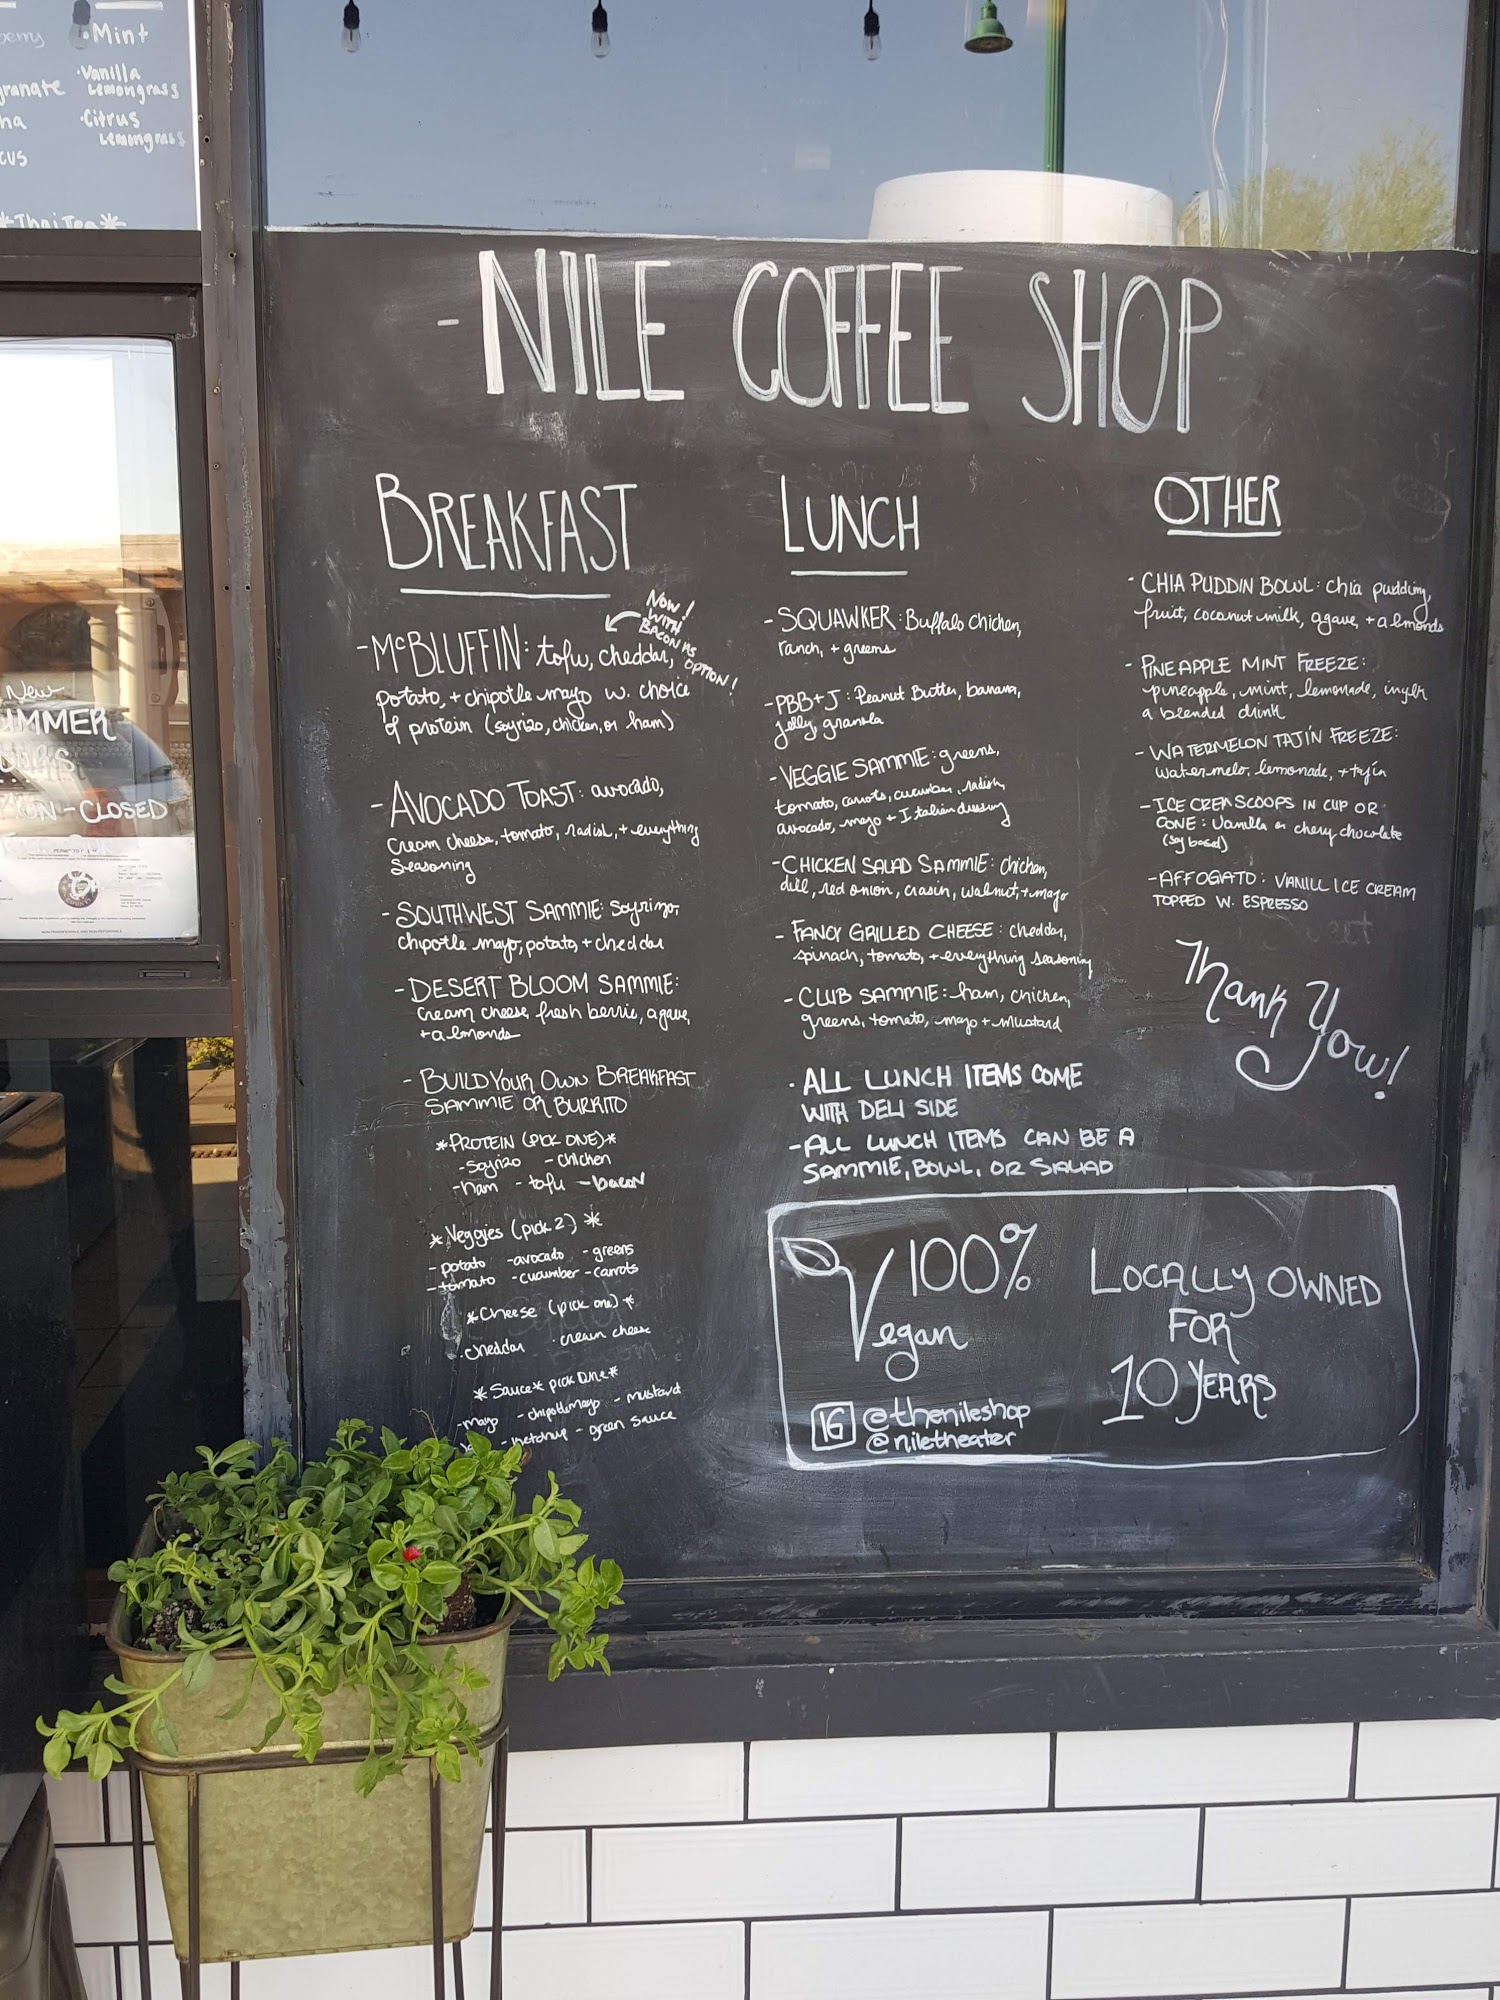 Mint
Vanilla
Lemongrass
Citrus
Lemongrass
*Thai Tea*
New
CLOSED
- NILE COFFEE SHOP
BREAKFAST
NOW!
WITH
BACON AS
OPTION!
- McBLUFFIN: tofu, cheddar,
potato, + chipotle mayo w. choice
of protein (soyrizo, chicken, or ham)
- AVOCADO TOAST: avocado,
cream cheese, tomato, radish, + everything
seasoning
- SOUTHWEST SAMMIE: soyrizo,
chipotle mayo, potato, + cheddar
- DESERT BLOOM SAMMIE:
cream cheese, fresh berrie, agave,
+ almonds
- BUILD YOUR OWN BREAKFAST
SAMMIE OR BURRITO
*PROTEIN (PICK ONE)*
- soyrizo - chicken
- ham - tofu - bacon
*Veggies (pick 2)*
- potato - avocado - greens
- tomato - cucumber - carrots
*Cheese (pick one)*
· cheddar · cream cheese
*Sauce* pick one*
- mayo - chipotle mayo - mustard
- ketchup - green sauce
LUNCH
- SQUAWKER: Buffalo chicken,
ranch, + greens
- PBB+J: Peanut Butter, banana,
jelly, granola
- VEGGIE SAMMIE: greens,
tomato, carrots, cucumber, radish,
avocado, mayo + Italian dressing
- CHICKEN SALAD SAMMIE: chicken,
dill, red onion, crasin, walnut, + mayo
- FANCY GRILLED CHEESE: cheddar,
spinach, tomato, + everything seasoning
- CLUB SAMMIE: ham, chicken,
greens, tomato, mayo + mustard
· ALL LUNCH ITEMS COME
WITH DELI SIDE
- ALL LUNCH ITEMS CAN BE A
SAMMIE, BOWL, OR SALAD
OTHER
- CHIA PUDDIN BOWL: chia pudding,
fruit, coconut milk, agave, + almonds
- PINEAPPLE MINT FREEZE:
pineapple, mint, lemonade, in
a blended drink
- WATERMELON TAJÍN FREEZE:
watermelo, lemonade, + tajín
- ICE CREM SCOOPS IN CUP OR
CONE: Vanilla or cherry chocolate
(soy based)
- AFFOGATO: VANILL ICE CREAM
TOPPED W. ESPRESSO
Thank You!
100%
Vegan
LOCALLY OWNED
FOR
10 YEARS
IG @thenileshop
@niletheater